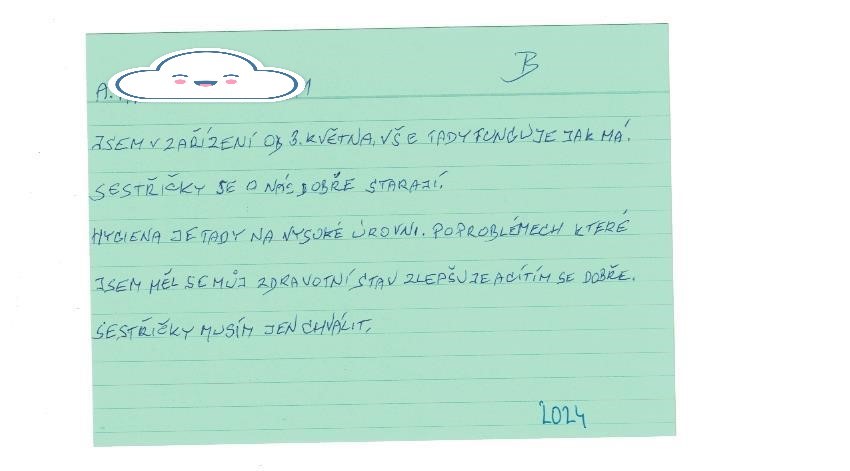 B
JSEM V ZAŘÍZENÍ OD 3. KVĚTNA, VŠE TADY FUNGUJE JAK MÁ.
SESTŘIČKY SE O NÁS DOBŘE STARAJÍ.
HYGIENA JE TADY NA VYSOKÉ ÚROVNI. PO PROBLÉMECH KTERÉ
JSEM MĚL SE MŮJ ZDRAVOTNÍ STAV ZLEPŠUJE A CÍTÍM SE DOBŘE.
SESTŘIČKY MUSÍM JEN CHVÁLIT.
2024